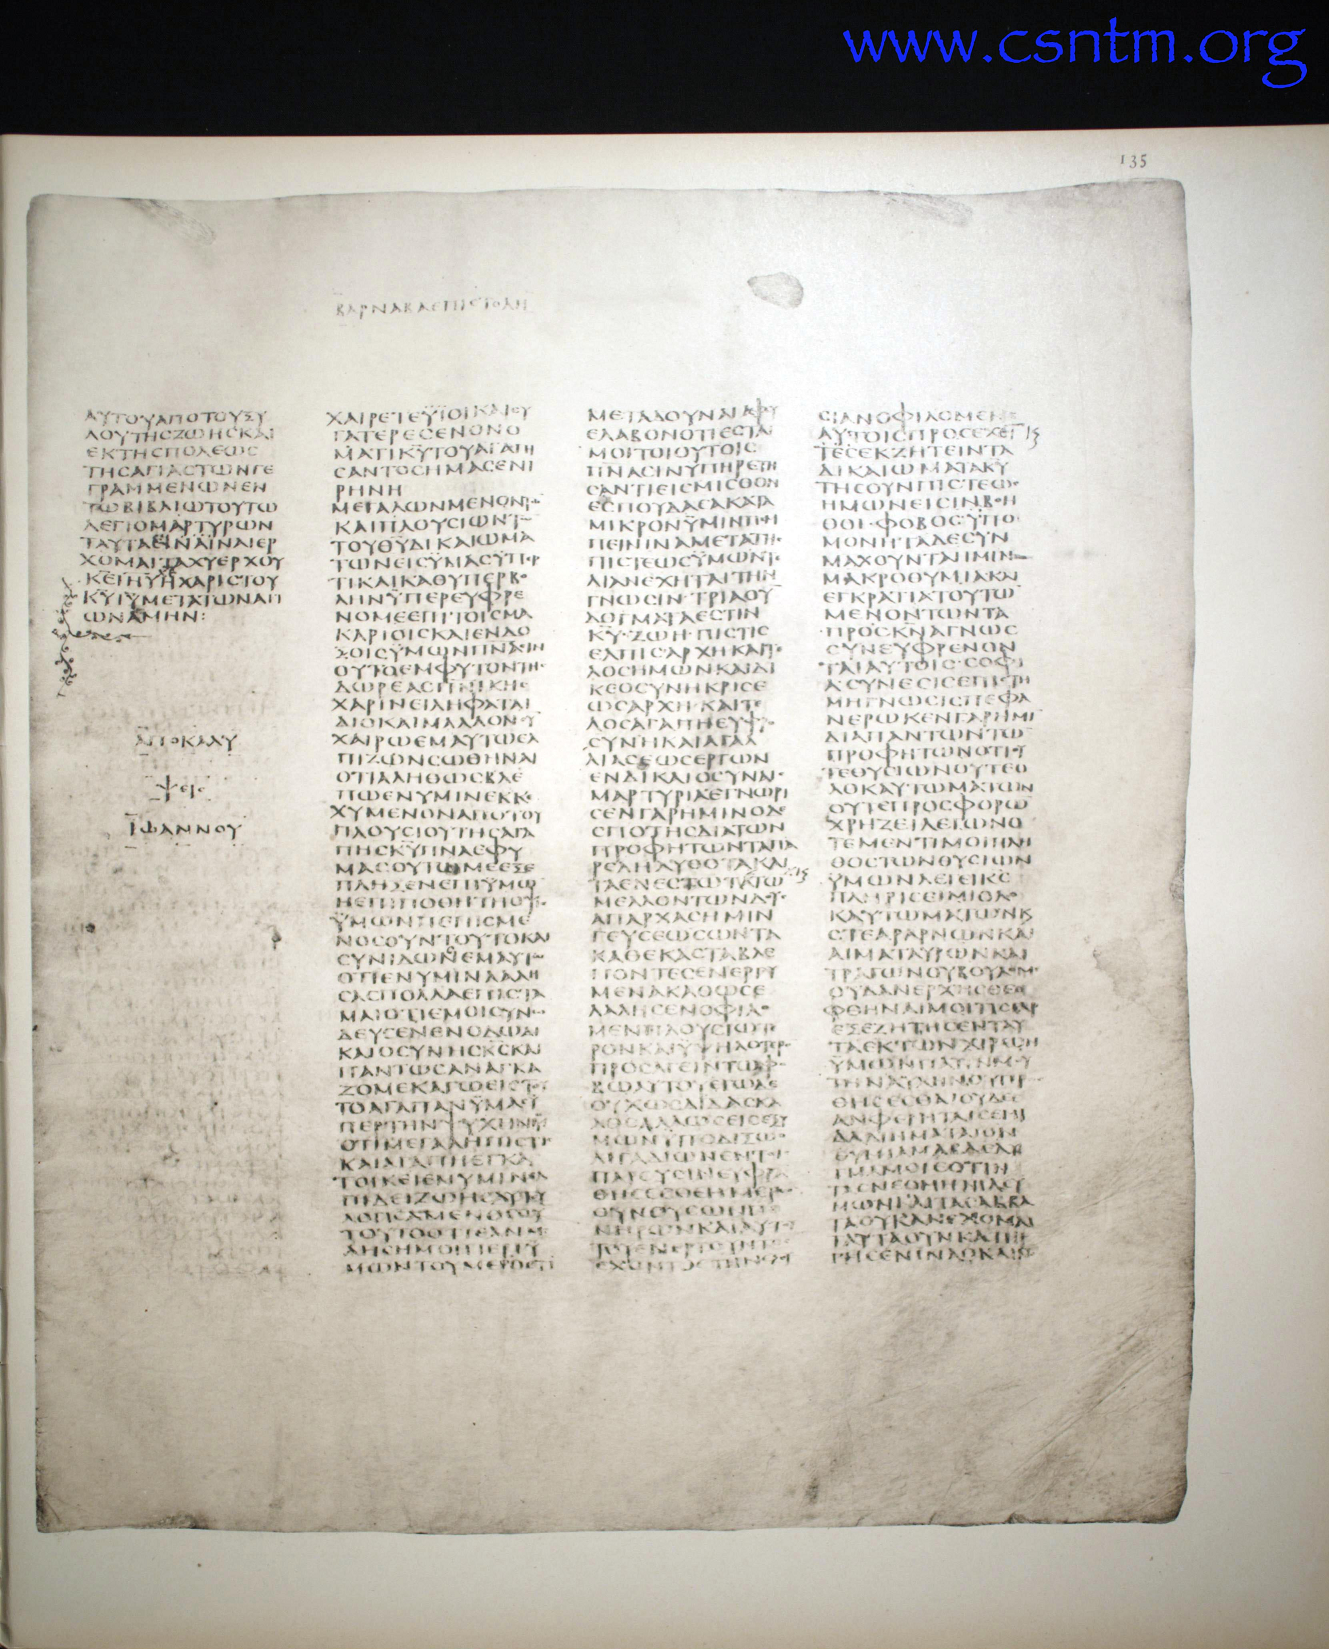 www.csntm.org
135
ΒΑΡΝΑΒΑ ΕΠΙΣΤΟΛΗ
ΑΥΤΟΥΑΠΟΤΟΥΞΥ
ΛΟΥΤΗϹΖΩΗϹΚΑΙ
ΕΚΤΗϹΠΟΛΕΩϹ
ΤΗϹΑΓΙΑϹΤΩΝΓΕ
ΓΡΑΜΜΕΝΩΝΕΝ
ΤΩΒΙΒΛΙΩΤΟΥΤΩ
ΛΕΓΙΟΜΑΡΤΥΡΩΝ
ΤΑΥΤΑΕΙΝΑΙΝΑΙΕΡ
ΧΟΜΑΙΤΑΧΥΕΡΧΟΥ
ΚΕΙΗΥΗΧΑΡΙϹΤΟΥ
ΚΥΙΥΜΕΤΑΤΩΝΑΓΙ
ΩΝΑΜΗΝ:
ΑΠΟΚΑΛΥ
ΨΕΙϹ
ΙΩΑΝΝΟΥ
ΧΑΙΡΕΤΕΫΙΟΙΚΑΙΘΥ
ΓΑΤΕΡΕϹΕΝΟΝΟ
ΜΑΤΙΚΥΤΟΥΑΓΑΠΗ
ϹΑΝΤΟϹΗΜΑϹΕΝΙ
ΡΗΝΗ
ΜΕΓΑΛΩΝΜΕΝΟΝΤΩ
ΚΑΙΠΛΟΥϹΙΩΝΤΩ
ΤΟΥΘΥΔΙΚΑΙΩΜΑ
ΤΩΝΕΙϹΥΜΑϹΥΠΕΡ
ΤΙΚΑΙΚΑΘΥΠΕΡΒΟ
ΛΗΝΫΠΕΡΕΥΦΡΕ
ΝΟΜΕΕΠΙΤΟΙϹΜΑ
ΚΑΡΙΟΙϹΚΑΙΕΝΔΟ
ΞΟΙϹΫΜΩΝΠΝΑϹΙΝ
ΟΥΤΩΕΜΦΥΤΟΝΤΗϹ
ΔΩΡΕΑϹΠΝΙΚΗϹ
ΧΑΡΙΝΕΙΛΗΦΑΤΑΙ
ΔΙΟΚΑΙΜΑΛΛΟΝϹΥ
ΧΑΙΡΩΕΜΑΥΤΩΕΛ
ΠΙΖΩΝϹΩΘΗΝΑΙ
ΟΤΙΑΛΗΘΩϹΒΛΕ
ΠΩΕΝΥΜΙΝΕΚΚΕ
ΧΥΜΕΝΟΝΑΠΟΤΟΥ
ΠΛΟΥϹΙΟΥΤΗϹΑΓΑ
ΠΗϹΚΥΠΝΑΕΦΥ
ΜΑϹΟΥΤΩΜΕΕΞΕ
ΠΛΗΞΕΝΕΠΙΥΜΩ
ΗΕΠΙΠΟΘΗΤΗΟΨΙϹ
ΫΜΩΝΠΕΠΙϹΜΕ
ΝΟϹΟΥΝΤΟΥΤΟΚΑΙ
ϹΥΝΙΔΩΝΕΜΑΥΤΩ
ΟΤΙΕΝΥΜΙΝΛΑΛΗ
ϹΑϹΠΟΛΛΑΕΠΙϹΤΑ
ΜΑΙΟΤΙΕΜΟΙϹΥΝΩ
ΔΕΥϹΕΝΕΝΟΔΩΔΙ
ΚΑΙΟϹΥΝΗϹΚϹΚΑΙ
ΠΑΝΤΩϹΑΝΑΓΚΑ
ΖΟΜΕΚΑΓΩΕΙϹΤΟΥ
ΤΟΑΓΑΠΑΝΫΜΑϹΫ
ΠΕΡΤΗΝΨΥΧΗΝΜΟΥ
ΟΤΙΜΕΓΑΛΗΠΙϹΤΙϹ
ΚΑΙΑΓΑΠΗΕΓΚΑ
ΤΟΙΚΕΙΕΝΥΜΙΝΕΛ
ΠΙΔΕΙΖΩΗϹΑΥΤΟΥ
ΛΟΓΙϹΑΜΕΝΟϹΟΥ
ΤΟΥΤΟΟΤΙΕΑΝΜΕ
ΛΗϹΗΜΟΙΠΕΡΙΫ
ΜΩΝΤΟΥΜΕΡΟϹΤΙ
ΜΕΤΑΔΟΥΝΑΙΑΦΟΥ
ΕΛΑΒΟΝΟΤΙΕϹΤΑΙ
ΜΟΙΤΟΙΟΥΤΟΙϹ
ΠΝΑϹΙΝΥΠΗΡΕΤΗ
ϹΑΝΤΙΕΙϹΜΙϹΘΟΝ
ΕϹΠΟΥΔΑϹΑΚΑΤΑ
ΜΙΚΡΟΝΫΜΙΝΠΕΜ
ΠΕΙΝΙΝΑΜΕΤΑΤΗϹ
ΠΙϹΤΕΩϹΫΜΩΝΤΕ
ΛΙΑΝΕΧΗΤΑΙΤΗΝ
ΓΝΩϹΙΝ·ΤΡΙΑΟΥ
ΔΟΓΜΑΤΑΕϹΤΙΝ
ΚΥ·ΖΩΗ·ΠΙϹΤΙϹ
ΕΛΠΙϹ·ΑΡΧΗΚΑΙΤΕ
ΛΟϹΗΜΩΝΚΑΙΔΙ
ΚΕΟϹΥΝΗΚΡΙϹΕ
ΩϹΑΡΧΗΚΑΙΤΕ
ΛΟϹΑΓΑΠΗΕΥΦΡΟ
ϹΥΝΗΚΑΙΑΓΑΛ
ΛΙΑϹΕΩϹΕΡΓΩΝ
ΕΝΔΙΚΑΙΟϹΥΝΑΙϹ
ΜΑΡΤΥΡΙΑΕΓΝΩΡΙ
ϹΕΝΓΑΡΗΜΙΝΟΔΕ
ϹΠΟΤΗϹΔΙΑΤΩΝ
ΠΡΟΦΗΤΩΝΤΑΠΑ
ΡΕΛΗΛΥΘΟΤΑΚΑΙ
ΤΑΕΝΕϹΤΩΤΑΤΩ
ΜΕΛΛΟΝΤΩΝΔΟΥϹ
ΑΠΑΡΧΑϹΗΜΙΝ
ΓΕΥϹΕΩϹΩΝΤΑ
ΚΑΘΕΚΑϹΤΑΒΛΕ
ΠΟΝΤΕϹΕΝΕΡΓΟΥ
ΜΕΝΑΚΑΘΩϹΕ
ΛΑΛΗϹΕΝΟΦΙΛΟ
ΜΕΝΠΛΟΥϹΙΩΤΕ
ΡΟΝΚΑΙΥΨΗΛΟΤΕΡΟ
ΠΡΟϹΑΓΕΙΝΤΩΦΟ
ΒΩΑΥΤΟΥΕΓΩΔΕ
ΟΥΧΩϹΔΙΔΑϹΚΑ
ΛΟϹΑΛΛΩϹΕΙϹΕΞΫ
ΜΩΝΥΠΟΔΙΞΩΟ
ΛΙΓΑΔΙΩΝΕΝΤΟΙϹ
ΠΑΡΟΥϹΙΝΕΥΦΡΑ
ΘΗϹΕϹΘΕΗΜΕΡΩ
ΟΥΝΟΥϹΩΝΠΟ
ΝΗΡΩΝΚΑΙΑΥΤΟΥ
ΤΟΥΕΝΕΡΓΟΥΝΤΟϹ
ΕΧΟΝΤΟϹΤΗΝΕΞΟΥ
ϹΙΑΝΟΦΙΛΟΜΕΝ
ΑΥΤΟΙϹΠΡΟϹΕΧΕΙΝ
ΤΕϹΕΚΖΗΤΕΙΝΤΑ
ΔΙΚΑΙΩΜΑΤΑΚΥ
ΤΗϹΟΥΝΠΙϹΤΕΩϹ
ΗΜΩΝΕΙϹΙΝΒΟΗ
ΘΟΙ·ΦΟΒΟϹΫΠΟ
ΜΟΝΗΤΑΔΕϹΥΝ
ΜΑΧΟΥΝΤΑΙΜΙΝ
ΜΑΚΡΟΘΥΜΙΑΚΑΙ
ΕΓΚΡΑΤΙΑΤΟΥΤΩ
ΜΕΝΟΝΤΩΝΤΑ
ΠΡΟϹΚΝΑΓΝΩϹ
ϹΥΝΕΥΦΡΕΝΟΝ
ΤΑΙΑΥΤΟΙϹ·ϹΟΦΙ
ΑϹΥΝΕϹΙϹΕΠΙϹΤΗ
ΜΗΓΝΩϹΙϹΠΕΦΑ
ΝΕΡΩΚΕΝΓΑΡΗΜΙ
ΔΙΑΠΑΝΤΩΝΤΩ
ΠΡΟΦΗΤΩΝΟΤΙΟΥ
ΤΕΘΥϹΙΩΝΟΥΤΕΟ
ΛΟΚΑΥΤΩΜΑΤΩΝ
ΟΥΤΕΠΡΟϹΦΟΡΩ
ΧΡΗΖΕΙΛΕΓΩΝΟ
ΤΕΜΕΝΤΙΜΟΙΠΛΗ
ΘΟϹΤΩΝΘΥϹΙΩΝ
ΫΜΩΝΛΕΓΕΙΚϹ
ΠΛΗΡΙϹΕΙΜΙΟΛΟ
ΚΑΥΤΩΜΑΤΩΝΚ
ϹΤΕΑΡΑΡΝΩΝΚΑΙ
ΑΙΜΑΤΑΥΡΩΝΚΑΙ
ΤΡΑΓΩΝΟΥΒΟΥΛΟΜΕ
ΟΥΔΑΝΕΡΧΗϹΘΕΟ
ΦΘΗΝΑΙΜΟΙΤΙϹΓΑΡ
ΕΞΕΖΗΤΗϹΕΝΤΑΥ
ΤΑΕΚΤΩΝΧΙΡΩΝ
ΫΜΩΝΠΑΤΙΝΜΟΥ
ΤΗΝΑΥΛΗΝΟΥΠΡΟ
ΘΗϹΕϹΘΑΙΟΥΔΕ
ΑΝΦΕΡΗΤΑΙϹΕΜΙ
ΔΑΛΙΝΜΑΤΑΙΟΝ
ΘΥΜΙΑΜΑΒΔΕΛΥ
ΓΜΑΜΟΙΕϹΤΙΝ
ΤΑϹΝΕΟΜΗΝΙΑϹΫ
ΜΩΝΚΑΙΤΑϹΑΒΒΑ
ΤΑΟΥΚΑΝΕΧΟΜΑΙ
ΤΑΥΤΑΟΥΝΚΑΤΗΡ
ΓΗϹΕΝΙΝΑΟΚΑΙΝΟϹ